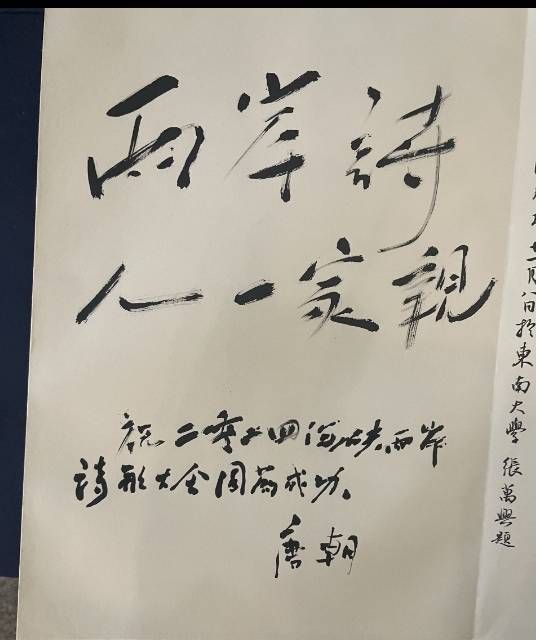 兩岸詩
人一家親
祝二零二四海峽兩岸
詩歌大會圓滿成功。
唐朝
月八日於東南大學 張萬興題